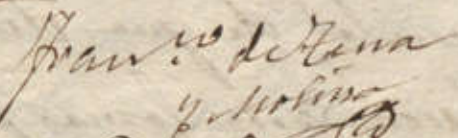 Fran.co de Tena
y Molina